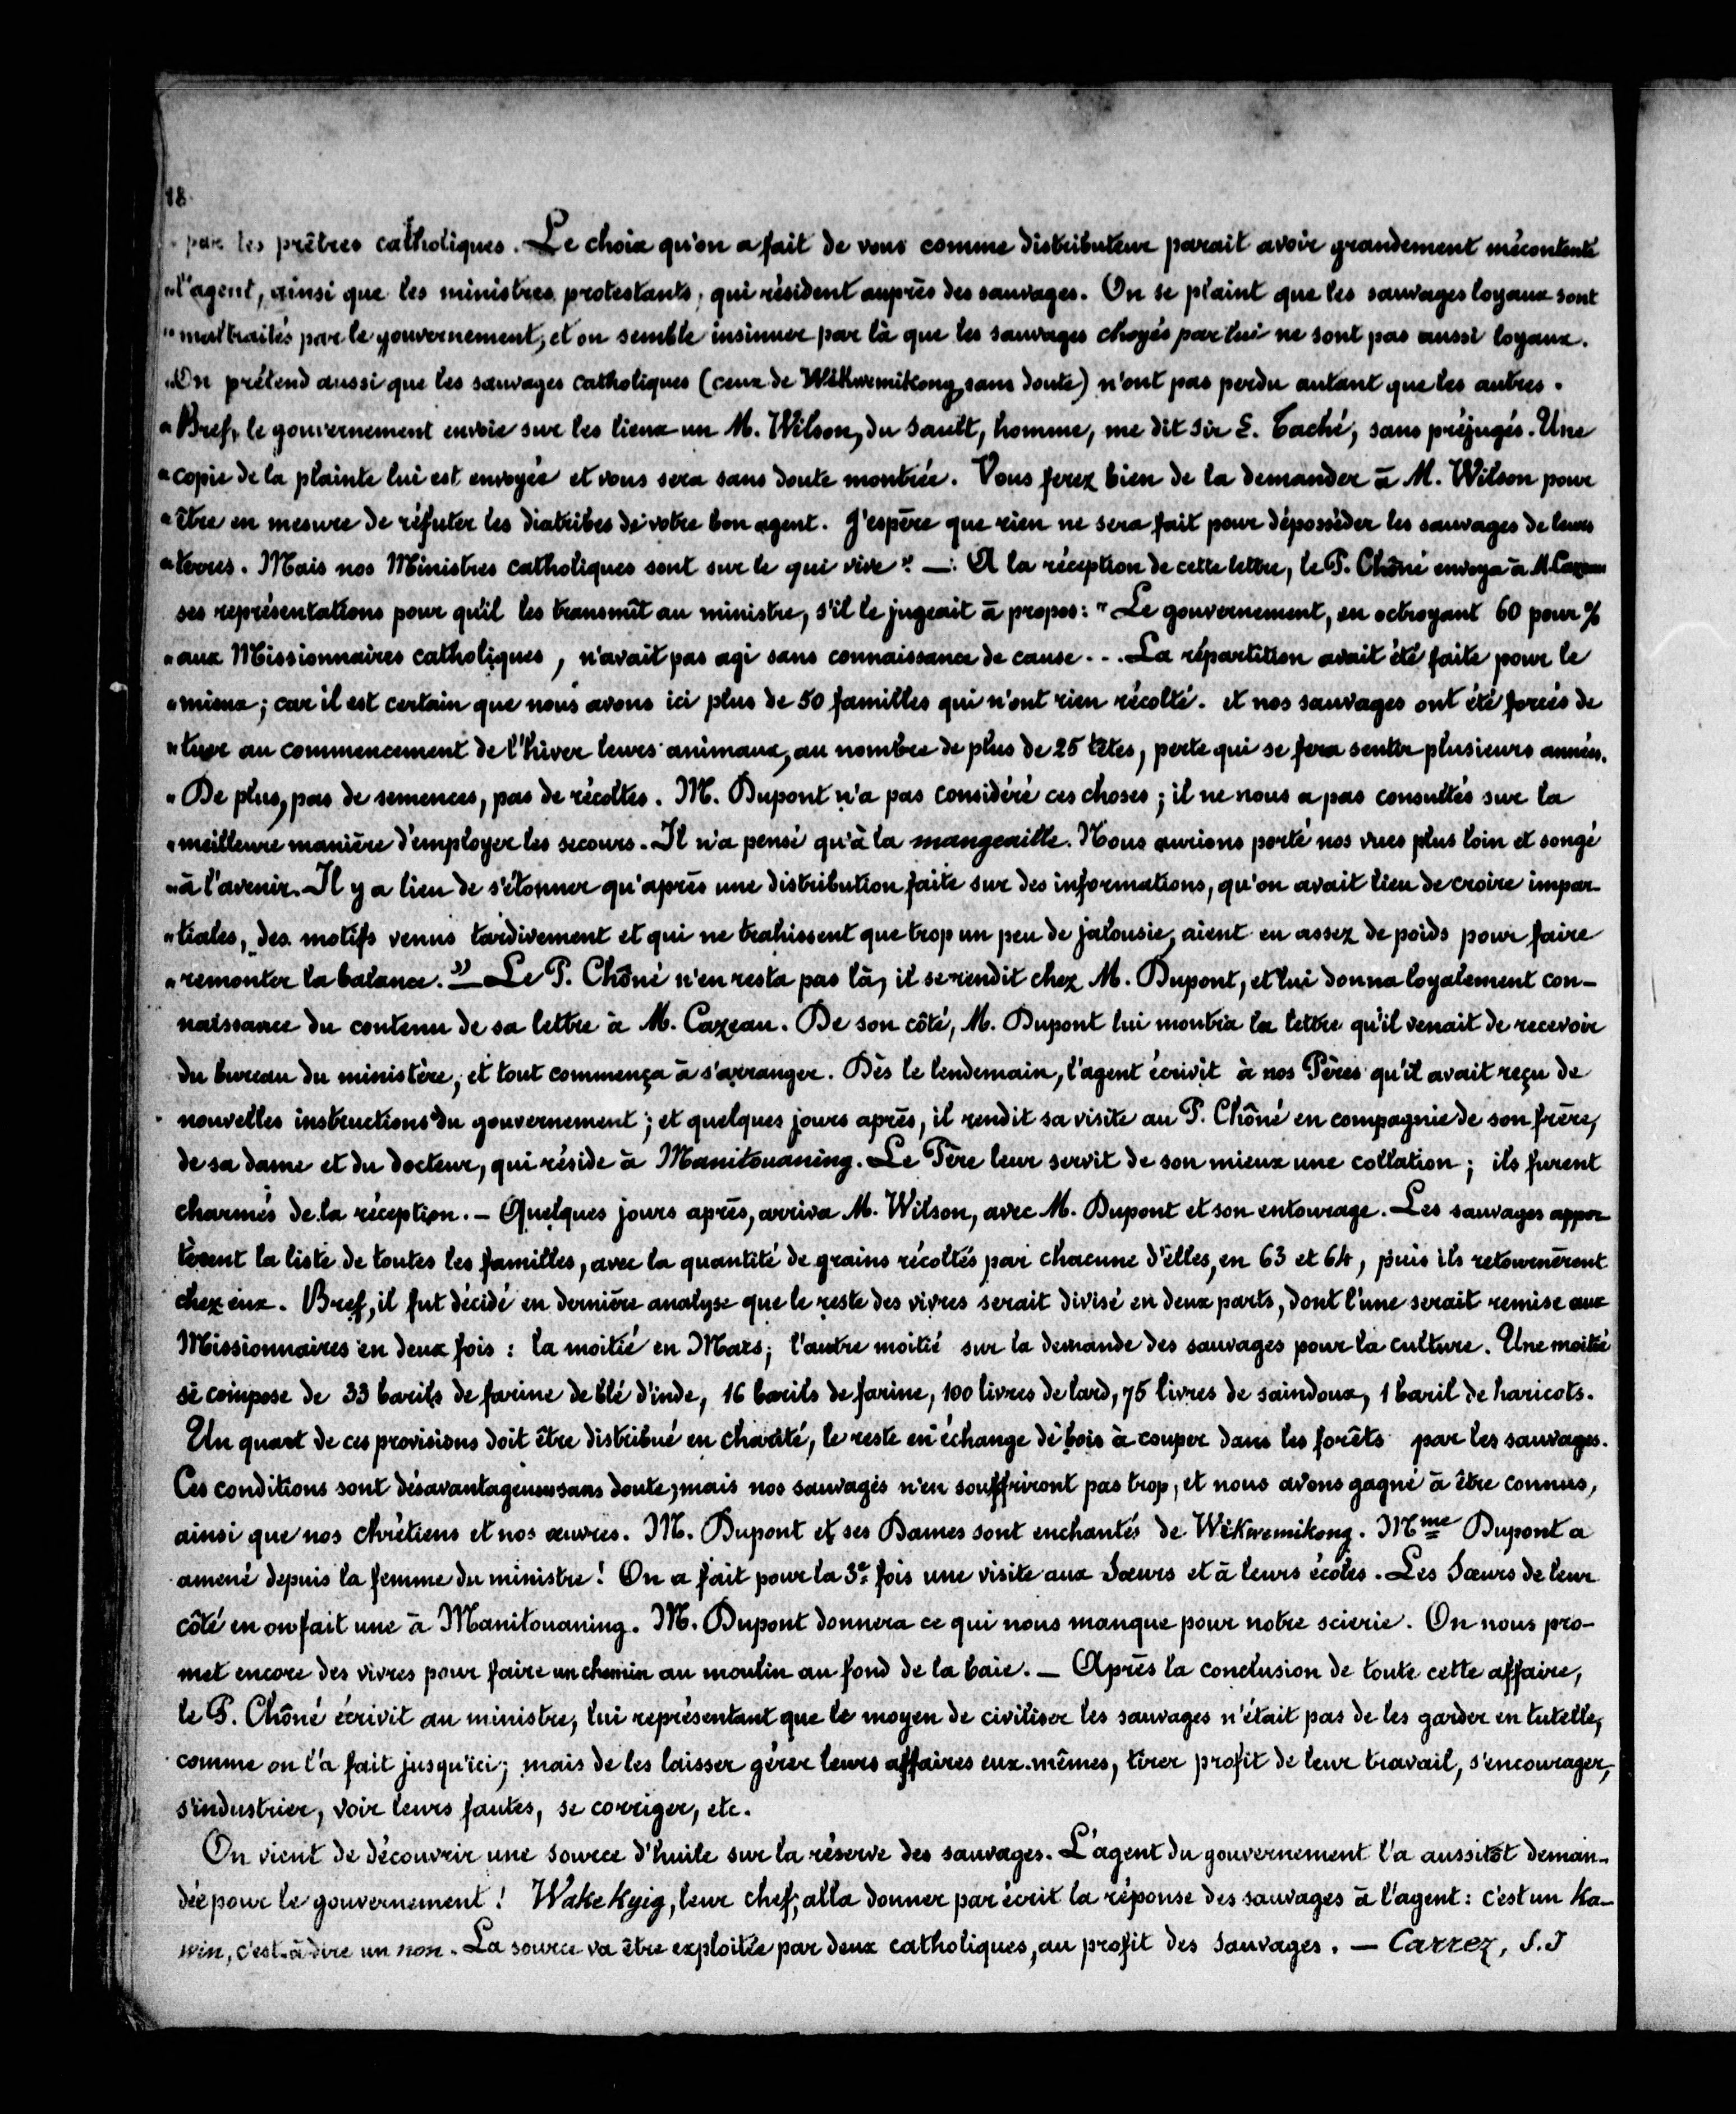 18
" par les prêtres catholiques. Le choix qu'on a fait de vous comme distributeur parait avoir grandement mécontenté
" l'agent, ainsi que les ministres protestants, qui résident auprès des sauvages. On se plaint que les sauvages loyaux sont
" maltraités par le gouvernement, et on semble insinuer par là que les sauvages choyés par lui ne sont pas aussi loyaux.
" On prétend aussi que les sauvages catholiques (ceux de Wikwemikong sans doute) n'ont pas perdu autant que les autres.
" Bref, le gouvernement envoie sur les lieux un M. Wilson, du Sault, homme, me dit Sir E. Taché, sans préjugés. Une
" copie de la plainte lui est envoyée et vous sera sans doute montrée. Vous ferez bien de la demander à M. Wilson pour
" être en mesure de réfuter les diatribes de votre bon agent. J'espère que rien ne sera fait pour déposséder les sauvages de leurs
" terres. Mais nos Ministres catholiques sont sur le qui vive" —. A la réception de cette lettre, le P. Chôné envoya à M. Cazeau
ses représentations pour qu'il les transmît au ministre, s'il le jugeait à propos: " Le gouvernement, en octroyant 60 pour %
" aux Missionnaires catholiques, n'avait pas agi sans connaissance de cause... La répartition avait été faite pour le
" mieux; car il est certain que nous avons ici plus de 50 familles qui n'ont rien récolté. et nos sauvages ont été forcés de
" tuer au commencement de l'hiver leurs animaux, au nombre de plus de 25 têtes, perte qui se fera sentir plusieurs années.
" De plus, pas de semences, pas de récoltes. M. Dupont n'a pas considéré ces choses; il ne nous a pas consultés sur la
" meilleure manière d'employer les secours. Il n'a pensé qu'à la mangeaille. Nous aurions porté nos vues plus loin et songé
" à l'avenir. Il y a lieu de s'étonner qu'après une distribution faite sur des informations, qu'on avait lieu de croire impar-
" tiales, des motifs venus tardivement et qui ne trahissent que trop un peu de jalousie, aient eu assez de poids pour faire
" remonter la balance." — Le P. Chôné n'en resta pas là, il se rendit chez M. Dupont, et lui donna loyalement con-
naissance du contenu de sa lettre à M. Cazeau. De son côté, M. Dupont lui montra la lettre qu'il venait de recevoir
du bureau du ministère, et tout commença à s'arranger. Dès le lendemain, l'agent écrivit à nos Pères qu'il avait reçu de
nouvelles instructions du gouvernement; et quelques jours après, il rendit sa visite au P. Chôné en compagnie de son frère,
de sa dame et du docteur, qui réside à Manitouaning. Le Père leur servit de son mieux une collation; ils furent
charmés de la réception. — Quelques jours après, arriva M. Wilson, avec M. Dupont et son entourage. Les sauvages appor-
tèrent la liste de toutes les familles, avec la quantité de grains récoltés par chacune d'elles, en 63 et 64, puis ils retournèrent
chez eux. Bref, il fut décidé en dernière analyse que le reste des vivres serait divisé en deux parts, dont l'une serait remise aux
Missionnaires en deux fois: la moitié en Mars; l'autre moitié sur la demande des sauvages pour la culture. Une moitié
se compose de 33 barils de farine de blé d'inde, 16 barils de farine, 100 livres de lard, 75 livres de saindoux, 1 baril de haricots.
Un quart de ces provisions doit être distribué en charité, le reste en échange de bois à couper dans les forêts par les sauvages.
Ces conditions sont désavantageuses sans doute, mais nos sauvages n'en souffriront pas trop, et nous avons gagné à être connus,
ainsi que nos chrétiens et nos œuvres. M. Dupont et ses Dames sont enchantés de Wikwemikong. Mme Dupont a
amené depuis la femme du ministre! On a fait pour la 3e fois une visite aux Sœurs et à leurs écoles. Les Sœurs de leur
côté en on fait une à Manitouaning. M. Dupont donnera ce qui nous manque pour notre scierie. On nous pro-
met encore des vivres pour faire un chemin au moulin au fond de la baie. — Après la conclusion de toute cette affaire,
le P. Chôné écrivit au ministre, lui représentant que le moyen de civiliser les sauvages n'était pas de les garder en tutelle,
comme on l'a fait jusqu'ici; mais de les laisser gérer leurs affaires eux-mêmes, tirer profit de leur travail, s'encourager,
s'industrier, voir leurs fautes, se corriger, etc.
On vient de découvrir une source d'huile sur la réserve des sauvages. L'agent du gouvernement l'a aussitôt deman-
dée pour le gouvernement! Wakekyig, leur chef, alla donner par écrit la réponse des sauvages à l'agent: c'est un ka-
win, c'est-à-dire un non. La source va être exploitée par deux catholiques, au profit des sauvages. — Carrez, S.J